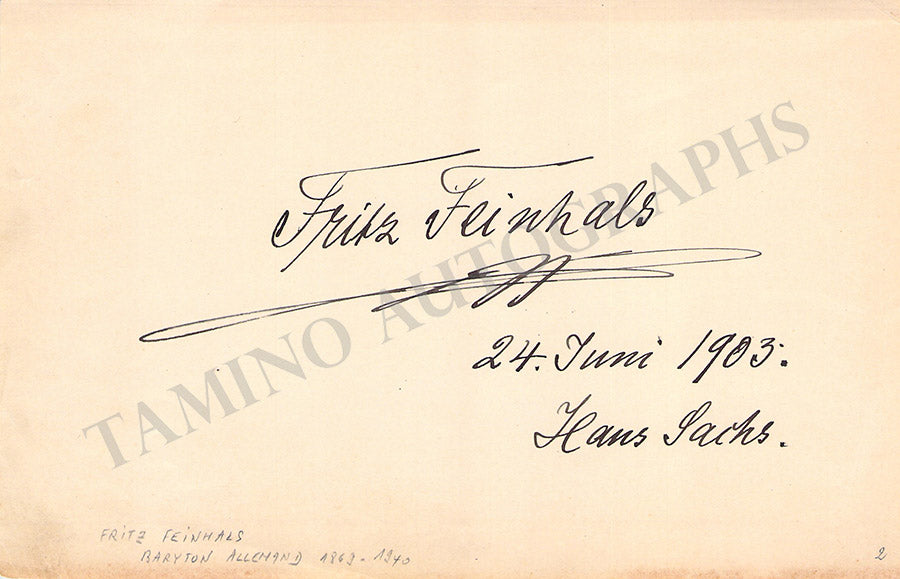 Fritz Feinhals
24. Juni 1903.
Hans Sachs.
TAMINO AUTOGRAPHS
FRITZ FEINHALS
BARYTON ALLEMAND 1869-1940
2